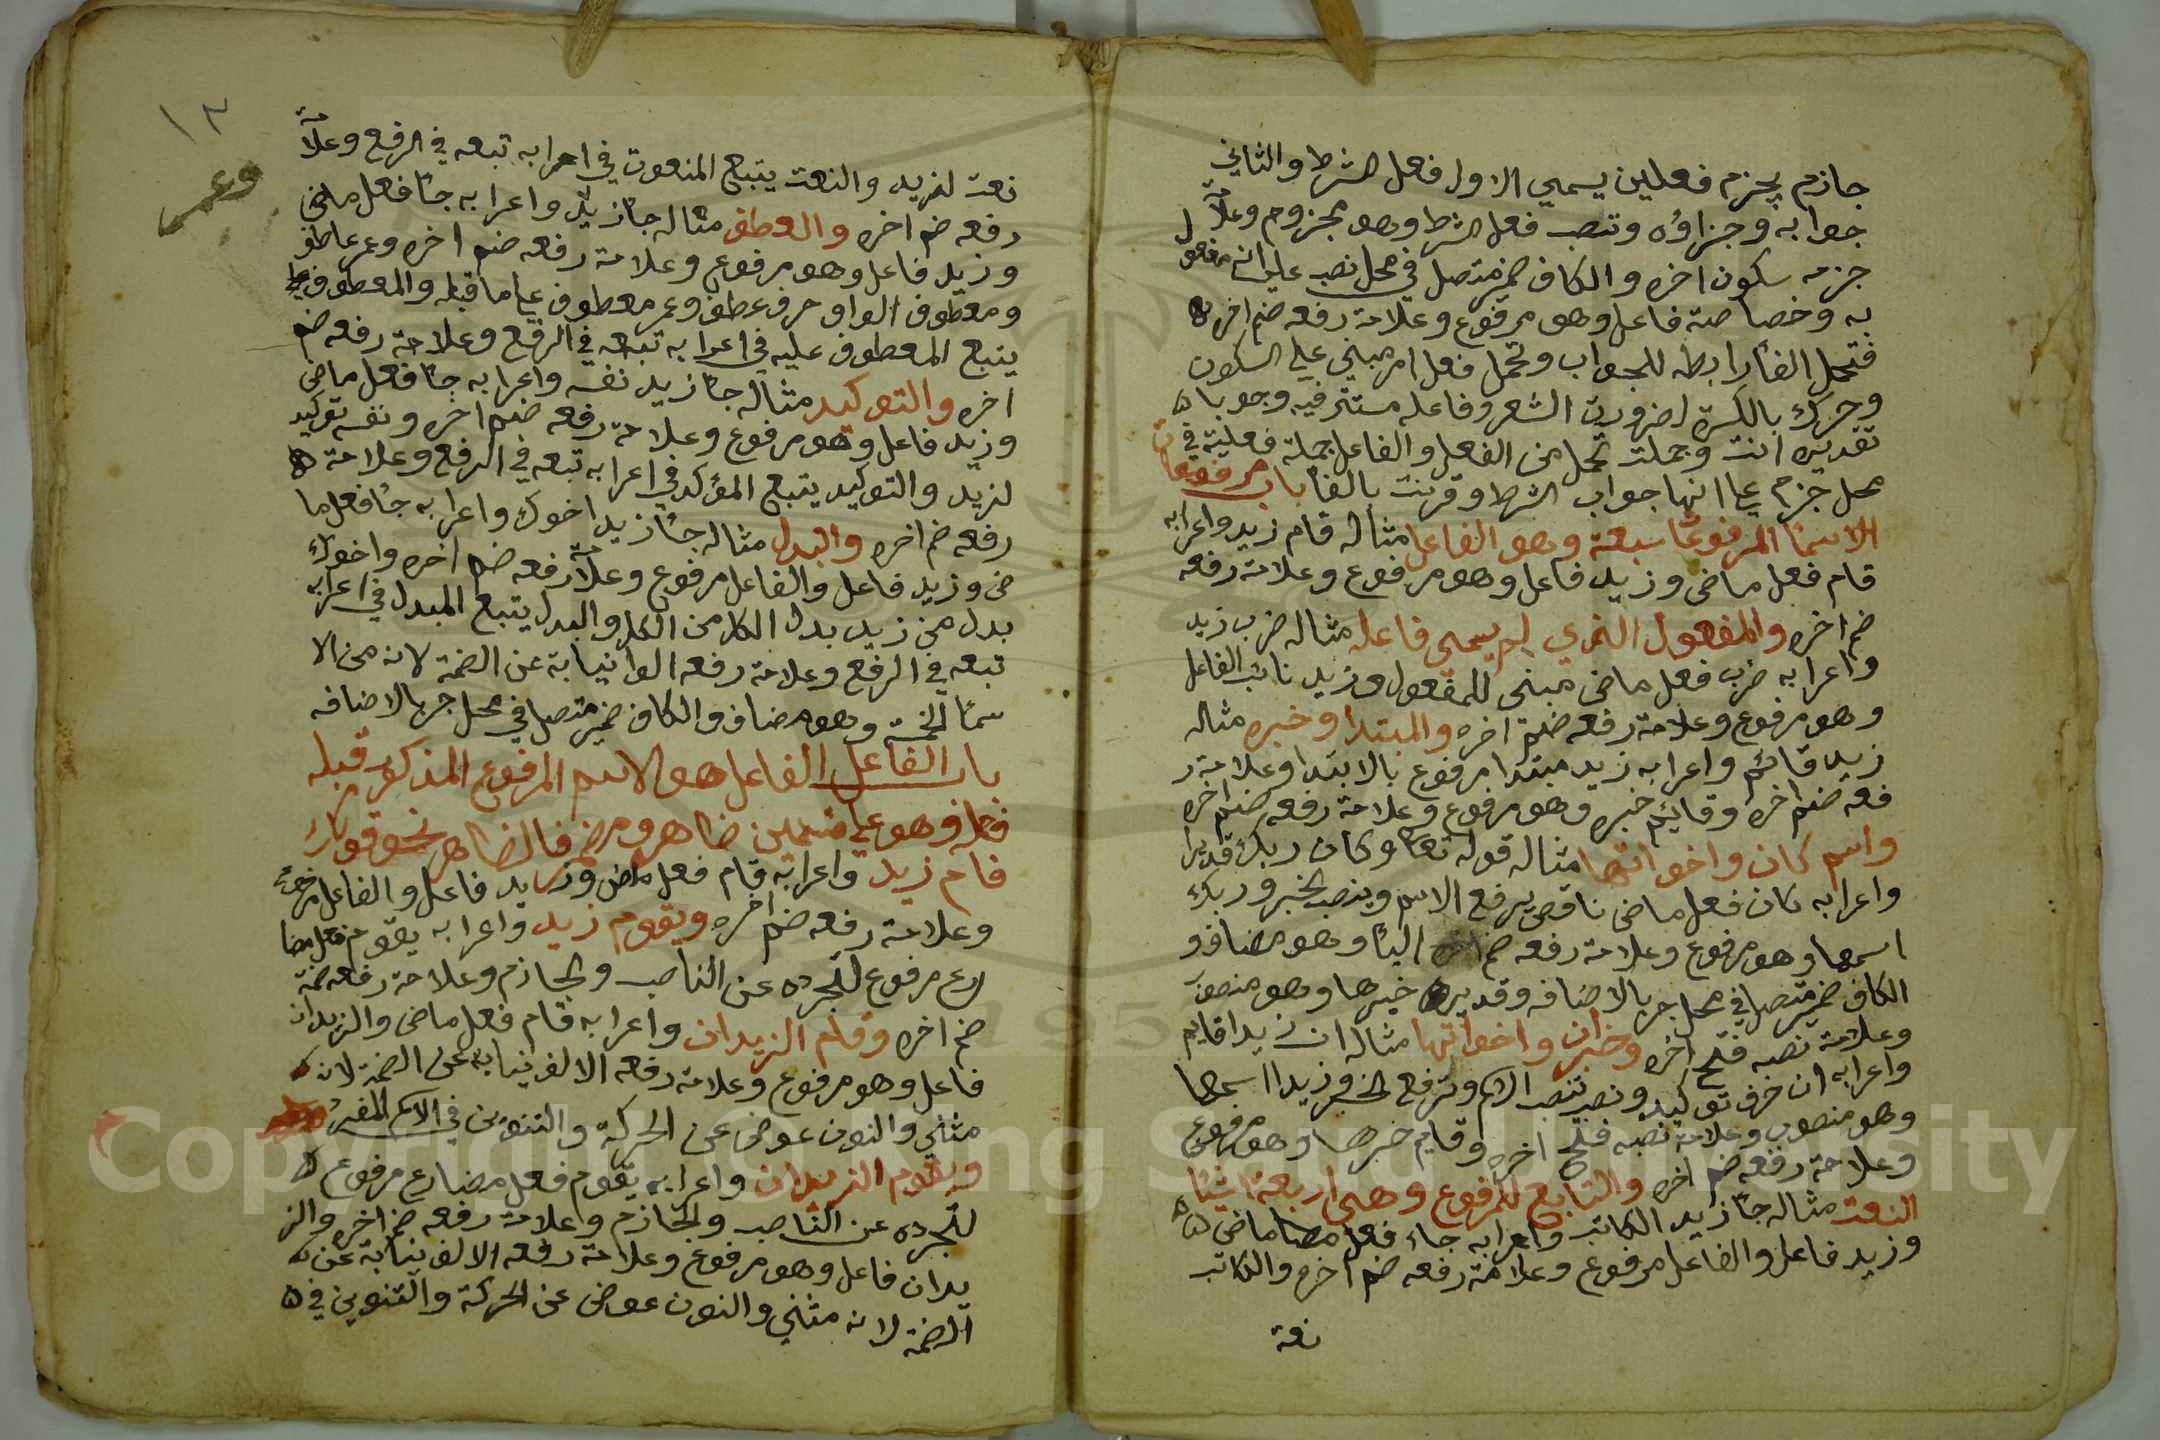 جازم يجزم فعلين يسمي الاول فعل الشرط والثاني
جوابه وجزاؤه وتصب فعل الشرط وهو مجزوم وعلامة
جزمه سكون اخره والكاف ضمير متصل في محل نصب على انه مفعول
به وخصاصة فاعل وهو مرفوع وعلامة رفعه ضم اخره
فتحمل الفا رابطه للجواب وتحمل فعل امر مبني على السكون
وحرك بالكسرة لضرورت الشعر وفاعله مستتر فيه وجوبا
تقديره انت وجملت تحمل من الفعل والفاعل جملة فعلية في
محل جزم على انها جواب الشرط وقرنت بالفا باب مرفوعات
الاسما المرفوعا سبعة وهو الفاعل مثاله قام زيد واعرابه
قام فعل ماضي وزيد فاعل وهو مرفوع وعلامة رفعه
ضم اخره والمفعول الذي لم يسمى فاعله مثاله ضرب زيد
واعرابه ضرب فعل ماضي مبني للمفعول وزيد نائب الفاعل
وهو مرفوع وعلامة رفعه ضم اخره والمبتدا وخبره مثاله
زيد قائم واعرابه زيد مبتدا مرفوع بالابتدا وعلامة ر
فعه ضم اخره وقايم خبره وهو مرفوع وعلامة رفعه ضم اخره
واسم كان واخواتها مثاله قوله تعا وكان ربك قديرا
واعرابه كان فعل ماضي ناقص يرفع الاسم وينصب الخبر وربك
اسمها وهو مرفوع وعلامة رفعه ضم البا وهو مضاف و
الكاف ضمير متصل في محل جر بالاضافه وقديرا خبرها وهو منصوب
وعلامة نصبه فتح اخره وخبر ان واخواتها مثاله ان زيدا قايم
واعرابه ان حرف توكيد ونصب تنصب الاسم وترفع الخبر وزيدا اسمها
وهو منصوب وعلامة نصبه فتح اخره وقايم خبرها وهو مرفوع
وعلامة رفعه ضم اخره والتابع للمرفوع وهي اربعة اشيا
النعت مثاله جا زيد الكاتب واعرابه جاء فعل ماضي
وزيد فاعل والفاعل مرفوع وعلامة رفعه ضم اخره والكاتب
نعة
١٣
وعمر
نعت لزيد والنعت يتبع المنعوت في اعرابه تبعه في الرفع وعلامة
رفعه ضم اخره والعطف مثاله جا زيد واعرابه جا فعل ماضي
وزيد فاعل وهو مرفوع وعلامة رفعه ضم اخره وعمر عاطف
ومعطوف الواو حرف عطف وعمر معطوف على ما قبله والمعطوف
يتبع المعطوف عليه في اعرابه تبعه في الرفع وعلامة رفعه ضم
اخره والتوكيد مثاله جا زيد نفسه واعرابه جا فعل ماضي
وزيد فاعل وهو مرفوع وعلامة رفعه ضم اخره ونفسه توكيد
لزيد والتوكيد يتبع المؤكد في اعرابه تبعه في الرفع وعلامة
رفعه ضم اخره والبدل مثاله جا زيد اخوك واعرابه جا فعل ما
ضي وزيد فاعل والفاعل مرفوع وعلامة رفعه ضم اخره واخوك
بدل من زيد بدل الكل من الكل والبدل يتبع المبدل في اعرابه
تبعه في الرفع وعلامة رفعه الوا نيابة عن الضمة لانه من الا
سما الخمسة وهو مضاف والكاف ضمير متصل في محل جر بالاضافه
باب الفاعل الفاعل هو الاسم المرفوع المذكور قبله
فعله وهو على قسمين ظاهر ومضمر فالظاهر نحو قولك
قام زيد واعرابه قام فعل ماض وزيد فاعل والفاعل مرفوع
وعلامة رفعه ضم اخره ويقوم زيد واعرابه يقوم فعل مضا
رع مرفوع لتجرده عن الناصب والجازم وعلامة رفعه ضمة
ضم اخره وقام الزيدان واعرابه قام فعل ماضي والزيدان
فاعل وهو مرفوع وعلامة رفعه الالف نيابة عن الضمة لانه
مثني والنون عوض عن الحركة والتنوين في الاسم المفرد
ويقوم الزيدان واعرابه يقوم فعل مضارع مرفوع
لتجرده عن الناصب والجازم وعلامة رفعه ضم اخره والز
يدان فاعل وهو مرفوع وعلامة رفعه الالف نيابة عن
الضمة لانه مثني والنون عوض عن الحركة والتنوين في
Copyright © King Saud University